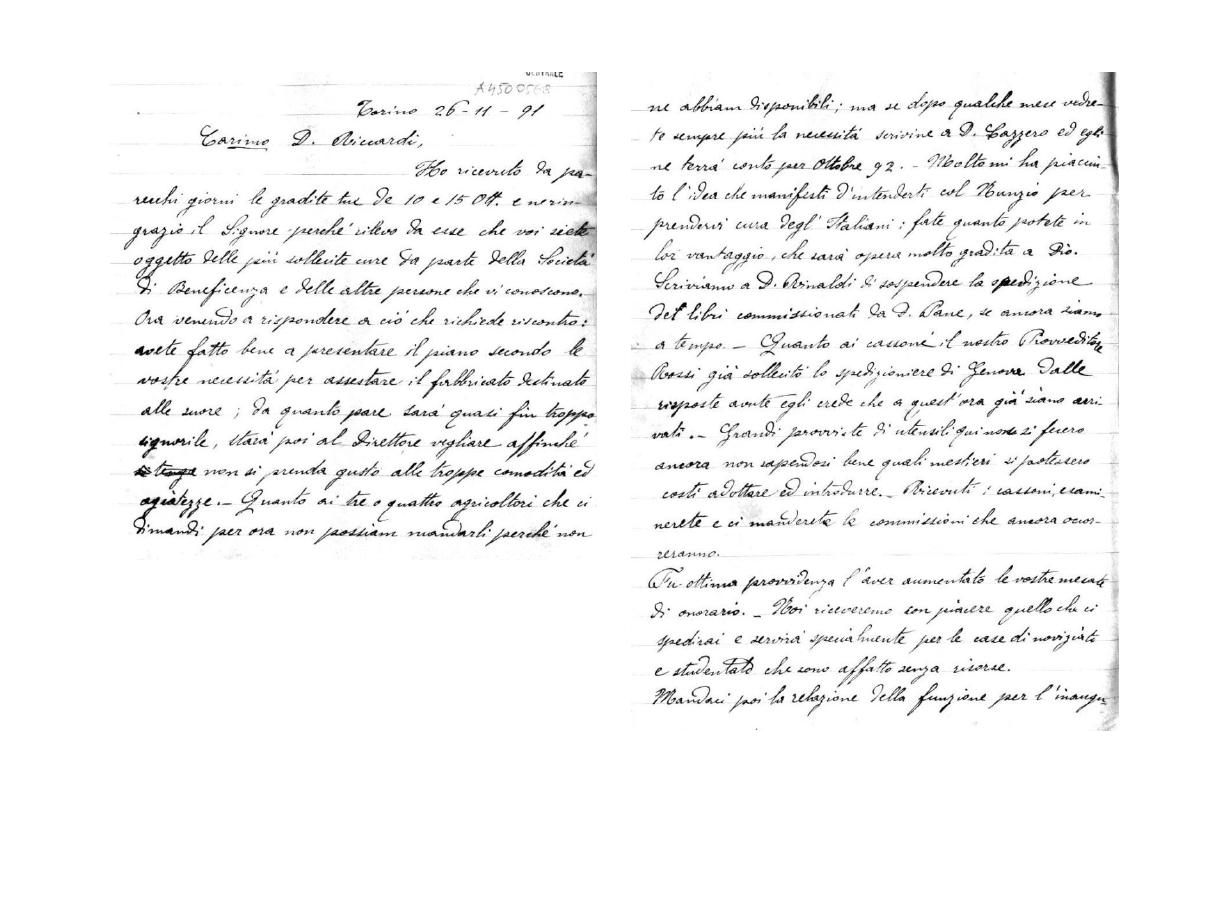 CENTRALE
A4500568
Torino 26-11-91
Carimo D. Riccardi,
Ho ricevuto da pa-
recchi giorni le gradite tue de 10 e 15 Ott. e ne rin-
grazio il Signore perché rilevo da esse che voi siete
oggetto delle più sollecite cure da parte della Società
di Beneficenza e delle altre persone che vi conoscono.
Ora venendo a rispondere a ciò che richiede riscontro:
avete fatto bene a presentare il piano secondo le
vostre necessità per assestare il fabbricato destinato
alle suore; da quanto pare sarà quasi fin troppo
signorile, starà poi al Direttore vegliare affinché
si tenga non si prenda gusto alle troppe comodità ed
agiatezze. - Quanto ai tre o quattro agricoltori che ci
dimandi per ora non possiam mandarli perché non
ne abbiam disponibili; ma se dopo qualche mese vedre-
te sempre più la necessità scrivine a D. Lazzero ed egli
ne terrà conto per Ottobre 92. - Molto mi ha piaciu-
to l'idea che manifesti d'intenderti col Nunzio per
prendervi cura degl'Italiani: fate quanto potete in
lor vantaggio, che sarà opera molto gradita a Dio.
Scriviamo a D. Rinaldi di sospendere la spedizione
dei libri commissionati da D. Pane, se ancora siamo
a tempo. - Quanto ai cassoni il nostro Provveditore
Rossi già sollecitò lo spedizioniere di Genova dalle
risposte avute egli crede che a quest'ora già siano arri
vati. - Grandi provviste di utensili qui non si fecero
ancora non sapendosi bene quali mestieri si potessero
costì adottare ed introdurre. - Ricevuti i cassoni, esami-
nerete e ci manderete le commissioni che ancora occor-
reranno.
Fu ottima provvidenza l'aver aumentato le vostre mesate
di onorario. - Noi riceveremo con piacere quello che ci
spedirai e servirà specialmente per le case di noviziato
e studentato che sono affatto senza risorse.
Mandaci poi la relazione della funzione per l'inaugu-